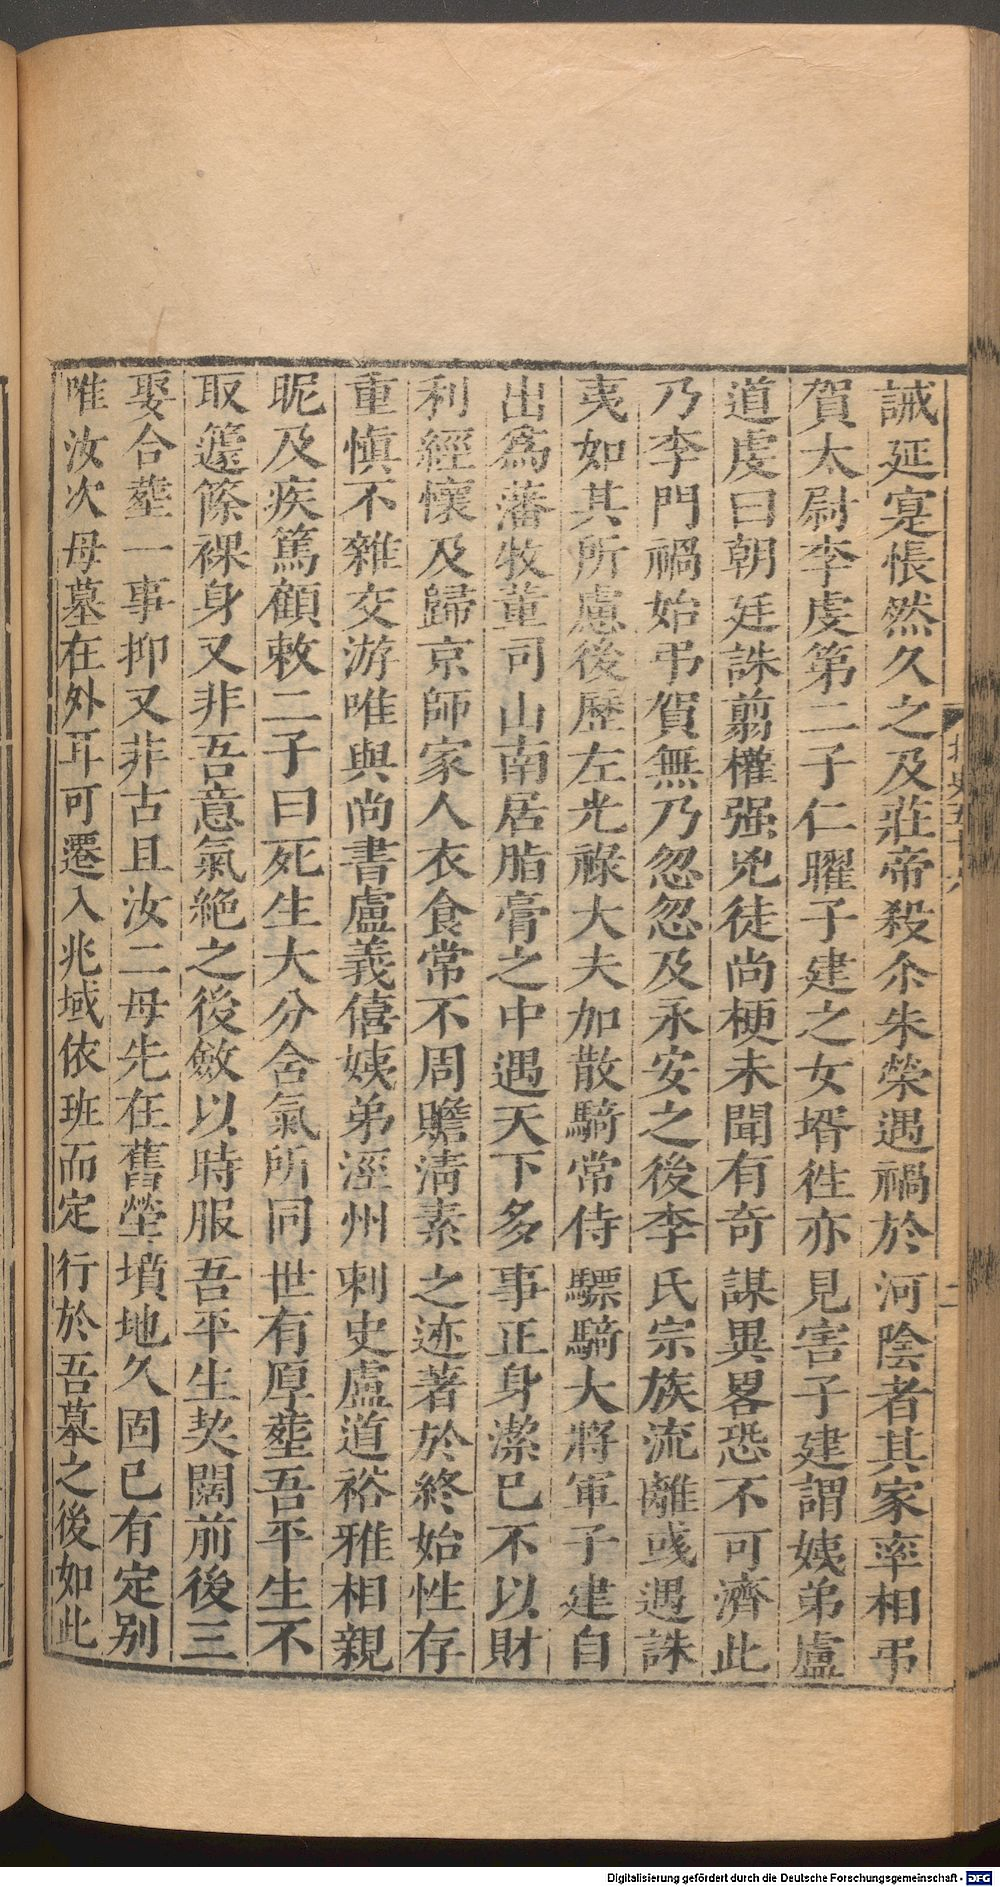 誡延寔悵然久之及莊帝殺尒朱榮遇禍於河陰者其家率相弔
賀太尉李虔第二子仁曜子建之女壻徃亦見害子建謂姨弟盧
道虔曰朝廷誅翦權强兇徒尚梗未聞有奇謀異畧恐不可濟此
乃李門禍始弔賀無乃忽忽及永安之後李氏宗族流離或遇誅
夷如其所慮後歷左光祿大夫加散騎常侍驃騎大將軍子建自
出爲藩牧董司山南居脂膏之中遇天下多事正身潔已不以財
利經懷及歸京師家人衣食常不周贍淸素之迹著於終始性存
重愼不雜交游唯與尚書盧義僖姨弟涇州刺史盧道裕雅相親
昵及疾篤顧敕二子曰死生大分含氣所同世有厚塟吾平生不
取籧篨裸身又非吾意氣絶之後斂以時服吾平生契闊前後三
娶合塟一事抑又非古且汝二母先在舊塋墳地久固已有定别
唯汝次母墓在外耳可遷入兆域依班而定行於吾墓之後如此
二
Digitalisierung gefördert durch die Deutsche Forschungsgemeinschaft - DFG